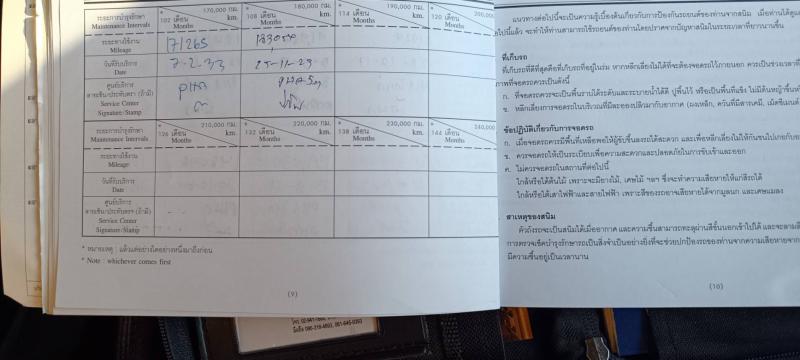 ระยะการบำรุงรักษา * 170,000 กม. * 180,000 กม. * 190,000 กม. * 200,000
Maintenance Intervals 102 เดือน Months km. 108 เดือน Months km. 114 เดือน Months km. 120 เดือน Months
ระยะทางใช้งาน
Mileage 171265
วันที่รับบริการ
Date 7-2-33 25-11-29
ศูนย์บริการ
ลายเซ็น/ประทับตรา (ถ้ามี)
Service Center
Signature/Stamp
ระยะการบำรุงรักษา * 210,000 กม. * 220,000 กม. * 230,000 กม. * 240,000
Maintenance Intervals 126 เดือน Months km. 132 เดือน Months km. 138 เดือน Months km. 144 เดือน Months
ระยะทางใช้งาน
Mileage
วันที่รับบริการ
Date
ศูนย์บริการ
ลายเซ็น/ประทับตรา (ถ้ามี)
Service Center
Signature/Stamp
* หมายเหตุ : แล้วแต่อย่างใดอย่างหนึ่งมาถึงก่อน
* Note : whichever comes first
(9)
แนวทางต่อไปนี้จะเป็นความรู้เบื้องต้นเกี่ยวกับการป้องกันรถยนต์ของท่านจากสนิม เมื่อท่านได้ดูแล
ไปนี้แล้ว จะทำให้ท่านสามารถใช้รถยนต์ของท่านโดยปราศจากปัญหาสนิมในระยะเวลาที่ยาวนานขึ้น
ที่เก็บรถ
ที่เก็บรถที่ดีที่สุดคือที่เก็บรถที่อยู่ในร่ม หากหลีกเลี่ยงไม่ได้ที่จะต้องจอดรถไว้ภายนอก ควรเป็นช่วงเวลาที่
ภาพที่จอดรถควรเป็นดังนี้
ก. ที่จอดรถควรจะเป็นพื้นราบได้ระดับและระบายน้ำได้ดี ปูพื้นไว้ หรือเป็นพื้นที่แข็ง ไม่มีดินหญ้าขึ้น
ข. หลีกเลี่ยงการจอดรถในบริเวณที่มีละอองปลิวมาก (ผงเหล็ก, ควันที่มีสารเคมี, เม็ดซีเมนต์
ข้อปฏิบัติเกี่ยวกับการจอดรถ
ก. เมื่อจอดรถควรมีพื้นที่เหลือพอให้ผู้ขับขึ้นลงรถได้สะดวก และเพื่อหลีกเลี่ยงไม่ให้กันชนไปเกยกับ
ข. ควรจอดรถให้เป็นระเบียบเพื่อความสะดวกและปลอดภัยในการขับเข้าและออก
ค. ไม่ควรจอดรถในสถานที่ต่อไปนี้
ใกล้หรือใต้ต้นไม้ เพราะจะมียางไม้, เศษไม้ ฯลฯ ซึ่งจะทำความเสียหายให้แก่สีรถได้
ใกล้หรือใต้เสาไฟฟ้าและสายไฟฟ้า เพราะสีของรถอาจเสียหายได้จากมูลนก และเศษแมลง
สาเหตุของสนิม
ตัวถังรถจะเป็นสนิมได้เมื่ออากาศ และความชื้นสามารถทะลุผ่านสีชั้นนอกเข้าไปได้ และจะลามลึก
การตรวจเช็คบำรุงรักษารถเป็นสิ่งจำเป็นอย่างยิ่งที่จะช่วยปกป้องรถของท่านจากความเสียหายจาก
มีความชื้นอยู่เป็นเวลานาน
(10)